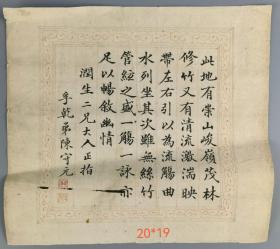 此地有崇山峻嶺茂林
修竹又有清流激湍映
帶左右引以為流觴曲
水列坐其次雖無絲竹
管絃之盛一觴一詠亦
足以暢敘幽情
潤生二兄大人正指
孚乾弟陳守元
20*19